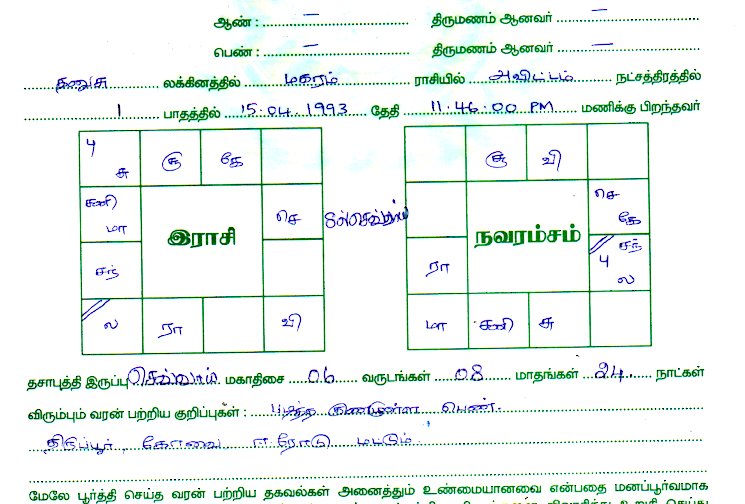 ஆண் : — திருமணம் ஆனவர் —
பெண் : — திருமணம் ஆனவர் —
தனுசு லக்கினத்தில் மகரம் ராசியில் அவிட்டம் நட்சத்திரத்தில்
1 பாதத்தில் 15.04.1993 தேதி 11:46:00 PM மணிக்கு பிறந்தவர்
பு
சு
சூ
கே
சனி
மா
செ
சந்
ல
ரா
வி
இராசி
8ல் செவ்வாய்
சூ
வி
செ
கே
ரா
சந்
பு
ல
மா
சனி
சு
நவரம்சம்
தசாபுத்தி இருப்பு செவ்வாய் மகாதிசை 06 வருடங்கள் 08 மாதங்கள் 24 நாட்கள்
விரும்பும் வரன் பற்றிய குறிப்புகள் : படித்த குணமுள்ள பெண்.
திருப்பூர், கோவை ஈரோடு மட்டும்.
மேலே பூர்த்தி செய்த வரன் பற்றிய தகவல்கள் அனைத்தும் உண்மையானவை என்பதை மனப்பூர்வமாக